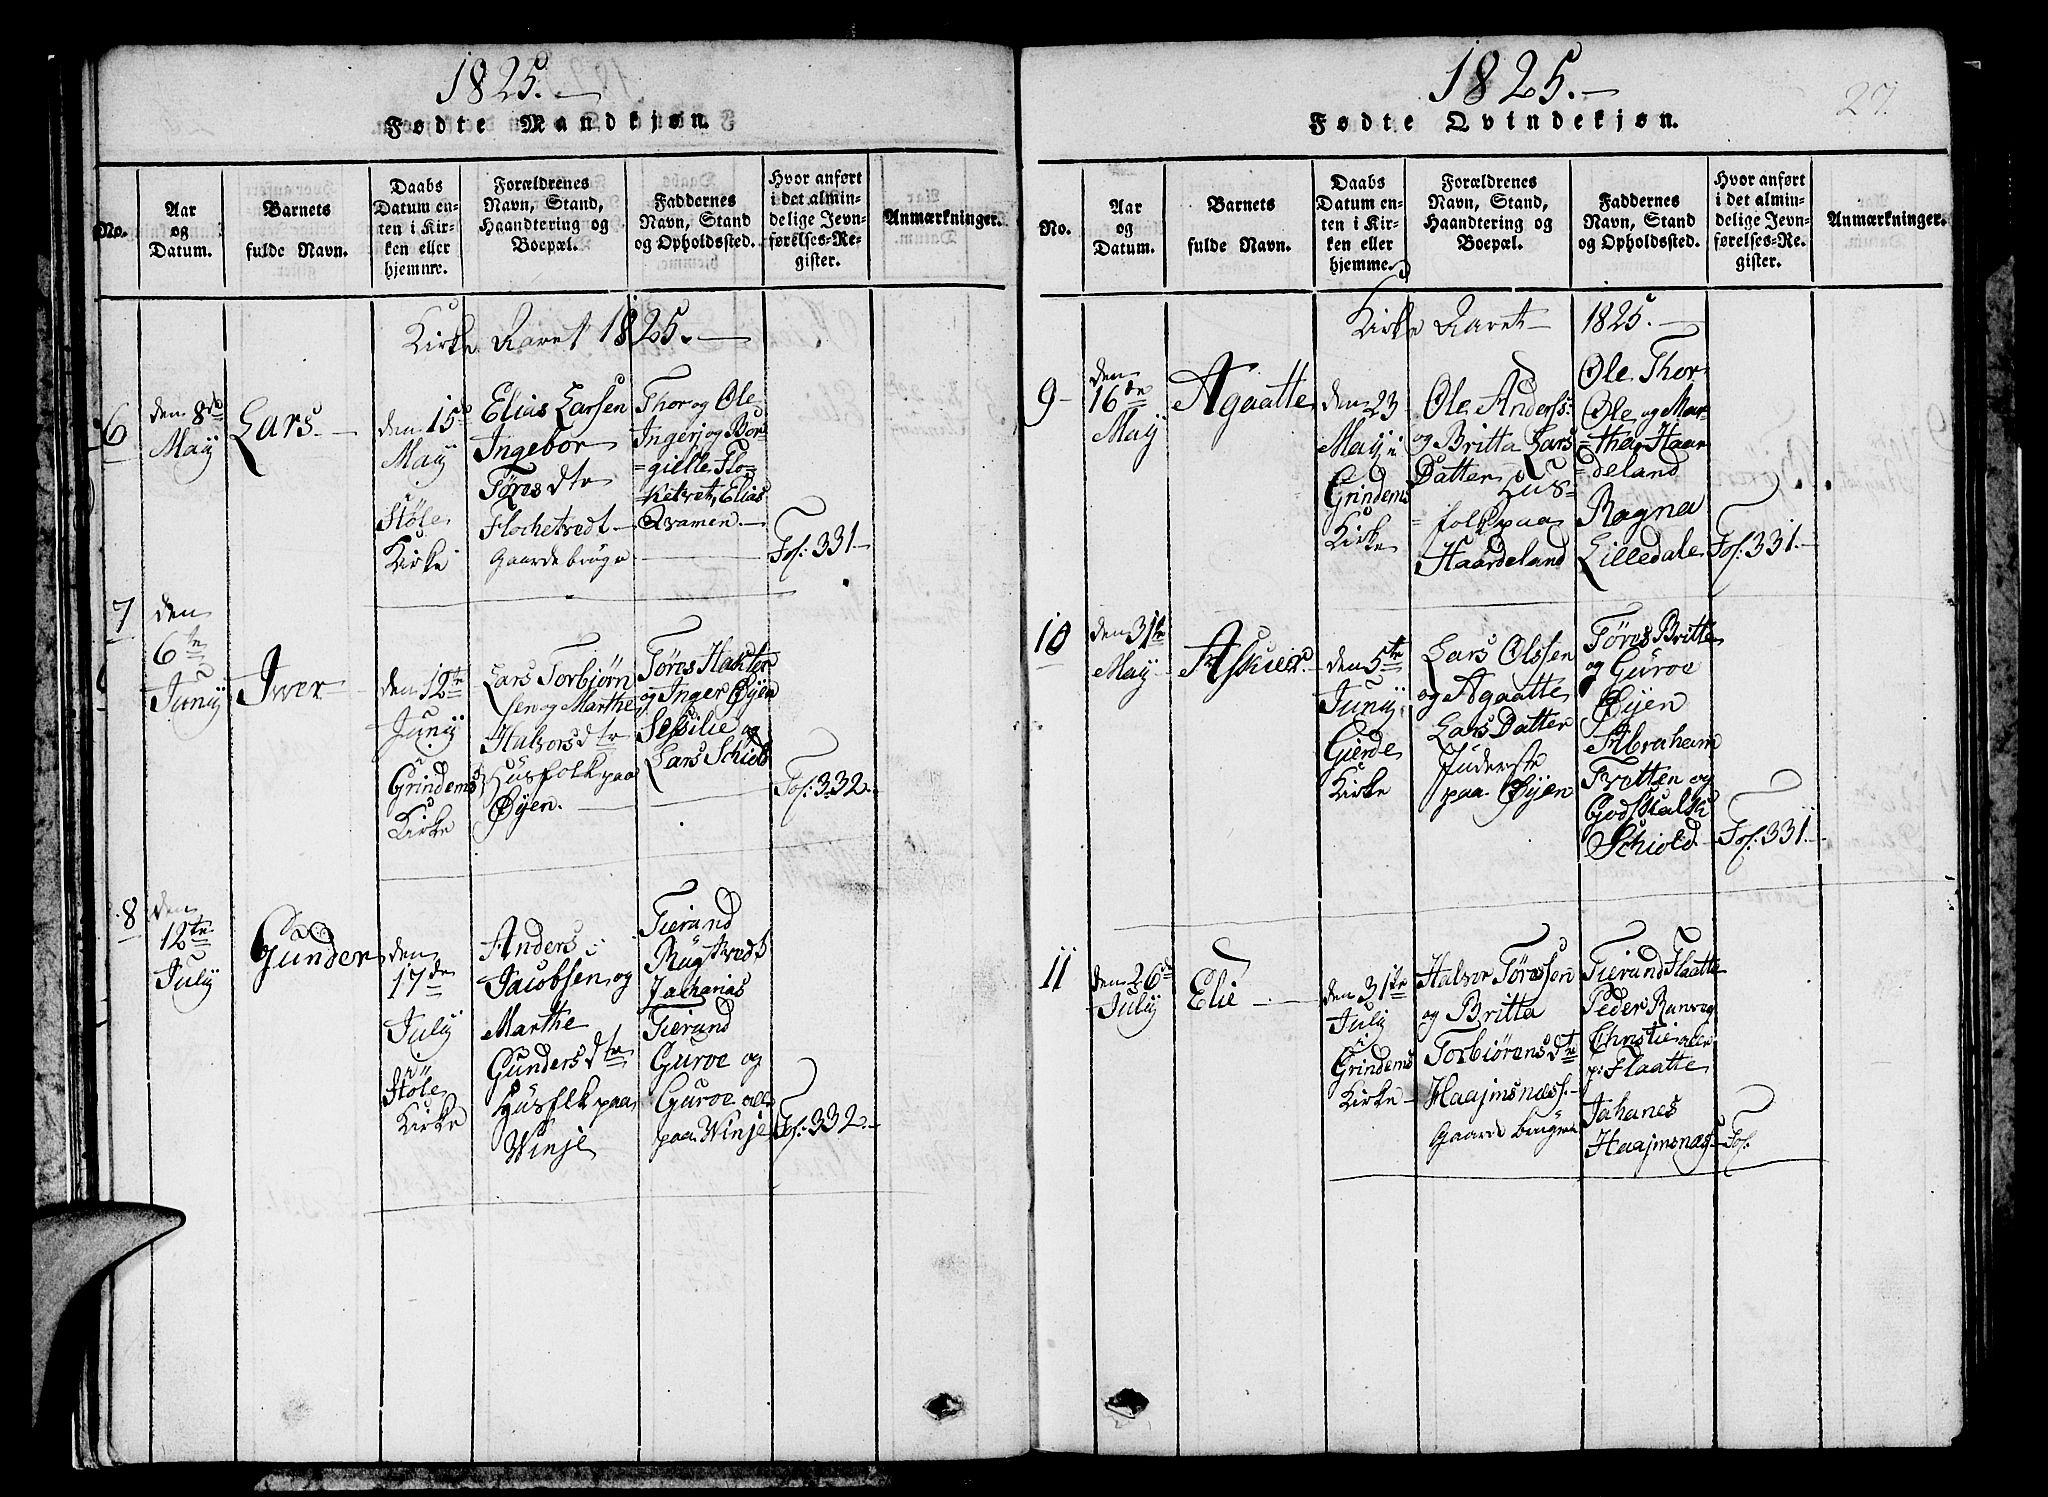 1825.
Fødte Mandkjøn.
No.
Aar
og
Datum.
Barnets
fulde Navn.
Daabs
Datum en-
ten i Kir-
ken eller
hjemme.
Forældrenes
Navn, Stand,
Haandtering og
Boepæl.
Faddernes
Navn, Stand
og Opholdssted.
Hvor anført
i det almin-
delige Jevn-
førelses-Re-
gister.
Anmærkninger.
Kirke Aaret 1825.
6
den 8de
May
Lars
den 15de
May
i
Støle
Kirke
Elias Larsen
Ingebor
Tøres dtr
Flochetvedt
Gaardebruge
Thor og Ole
Ingerj og Bor-
=gielle Flo-
Ketvet, Elias
Qvamen.
Fol: 331
7
den
6te
Junij
Iwer
den 12te
Junij
i
Grindems
Kirke
Lars Torbjørn
sen og Marthe
Halvorsdtr
Husfolk paa
Øyen.
Tøres Halvor
og Inger Øyen
Sessilie og
Lars Schiold
Fol: 332.
8
den
12te
July
Gunder
den
17de
July
i
Støle
Kirke
Anders
Jacobsen og
Marthe
Gunders dtr
Husflk paa
Winje
Tierand
Zacharias
Tierand
Guroe og
Guroe alle
paa Winje
Fol: 332.
1825.
27.
Fødte Qvindekjøn.
No.
Aar
og
Datum.
Barnets
fulde Navn.
Daabs
Datum en-
ten i Kir-
ken eller
hjemme.
Forældrenes
Navn, Stand,
Haandtering og
Boepæl.
Faddernes
Navn, Stand
og Opholdssted.
Hvor anført
i det almin-
delige Jevn-
førelses-Re-
gister.
Anmærkninger.
Kirke Aaret 1825.
9
den
16de
May
Agaatte
den 23
May i
Grindems
Kirke
Ole Anders:
og Britta Lars
Datter Hus=
=folk paa
Haardeland
Ole Thor
Ole og Mar
=tha Haar
=deland
Ragna
Lilledale
Fol: 331.
10
den 31te
May
Askier.
den 5te
Junij
i
Gierde
Kirke
Lars Olssen
og Agaatte
Lars Datter
Inderste
paa Øyen
Tøres Britte
og Guroe
Øyen
Abraham
Tvetten og
Godskalk
Schiold
Fol: 331.
11
den 26de
July
Elie
den 31te
July
i
Grindems
Kirke
Halvor Tøressen
og Britta
Torbiørensdtr
Haajmsnæss.
Gaardebrugere
Tierand Flaatte
Peder Ranveg
Christie alle
p: Flaatte
Johanes
Haajmsnæs
Fol.